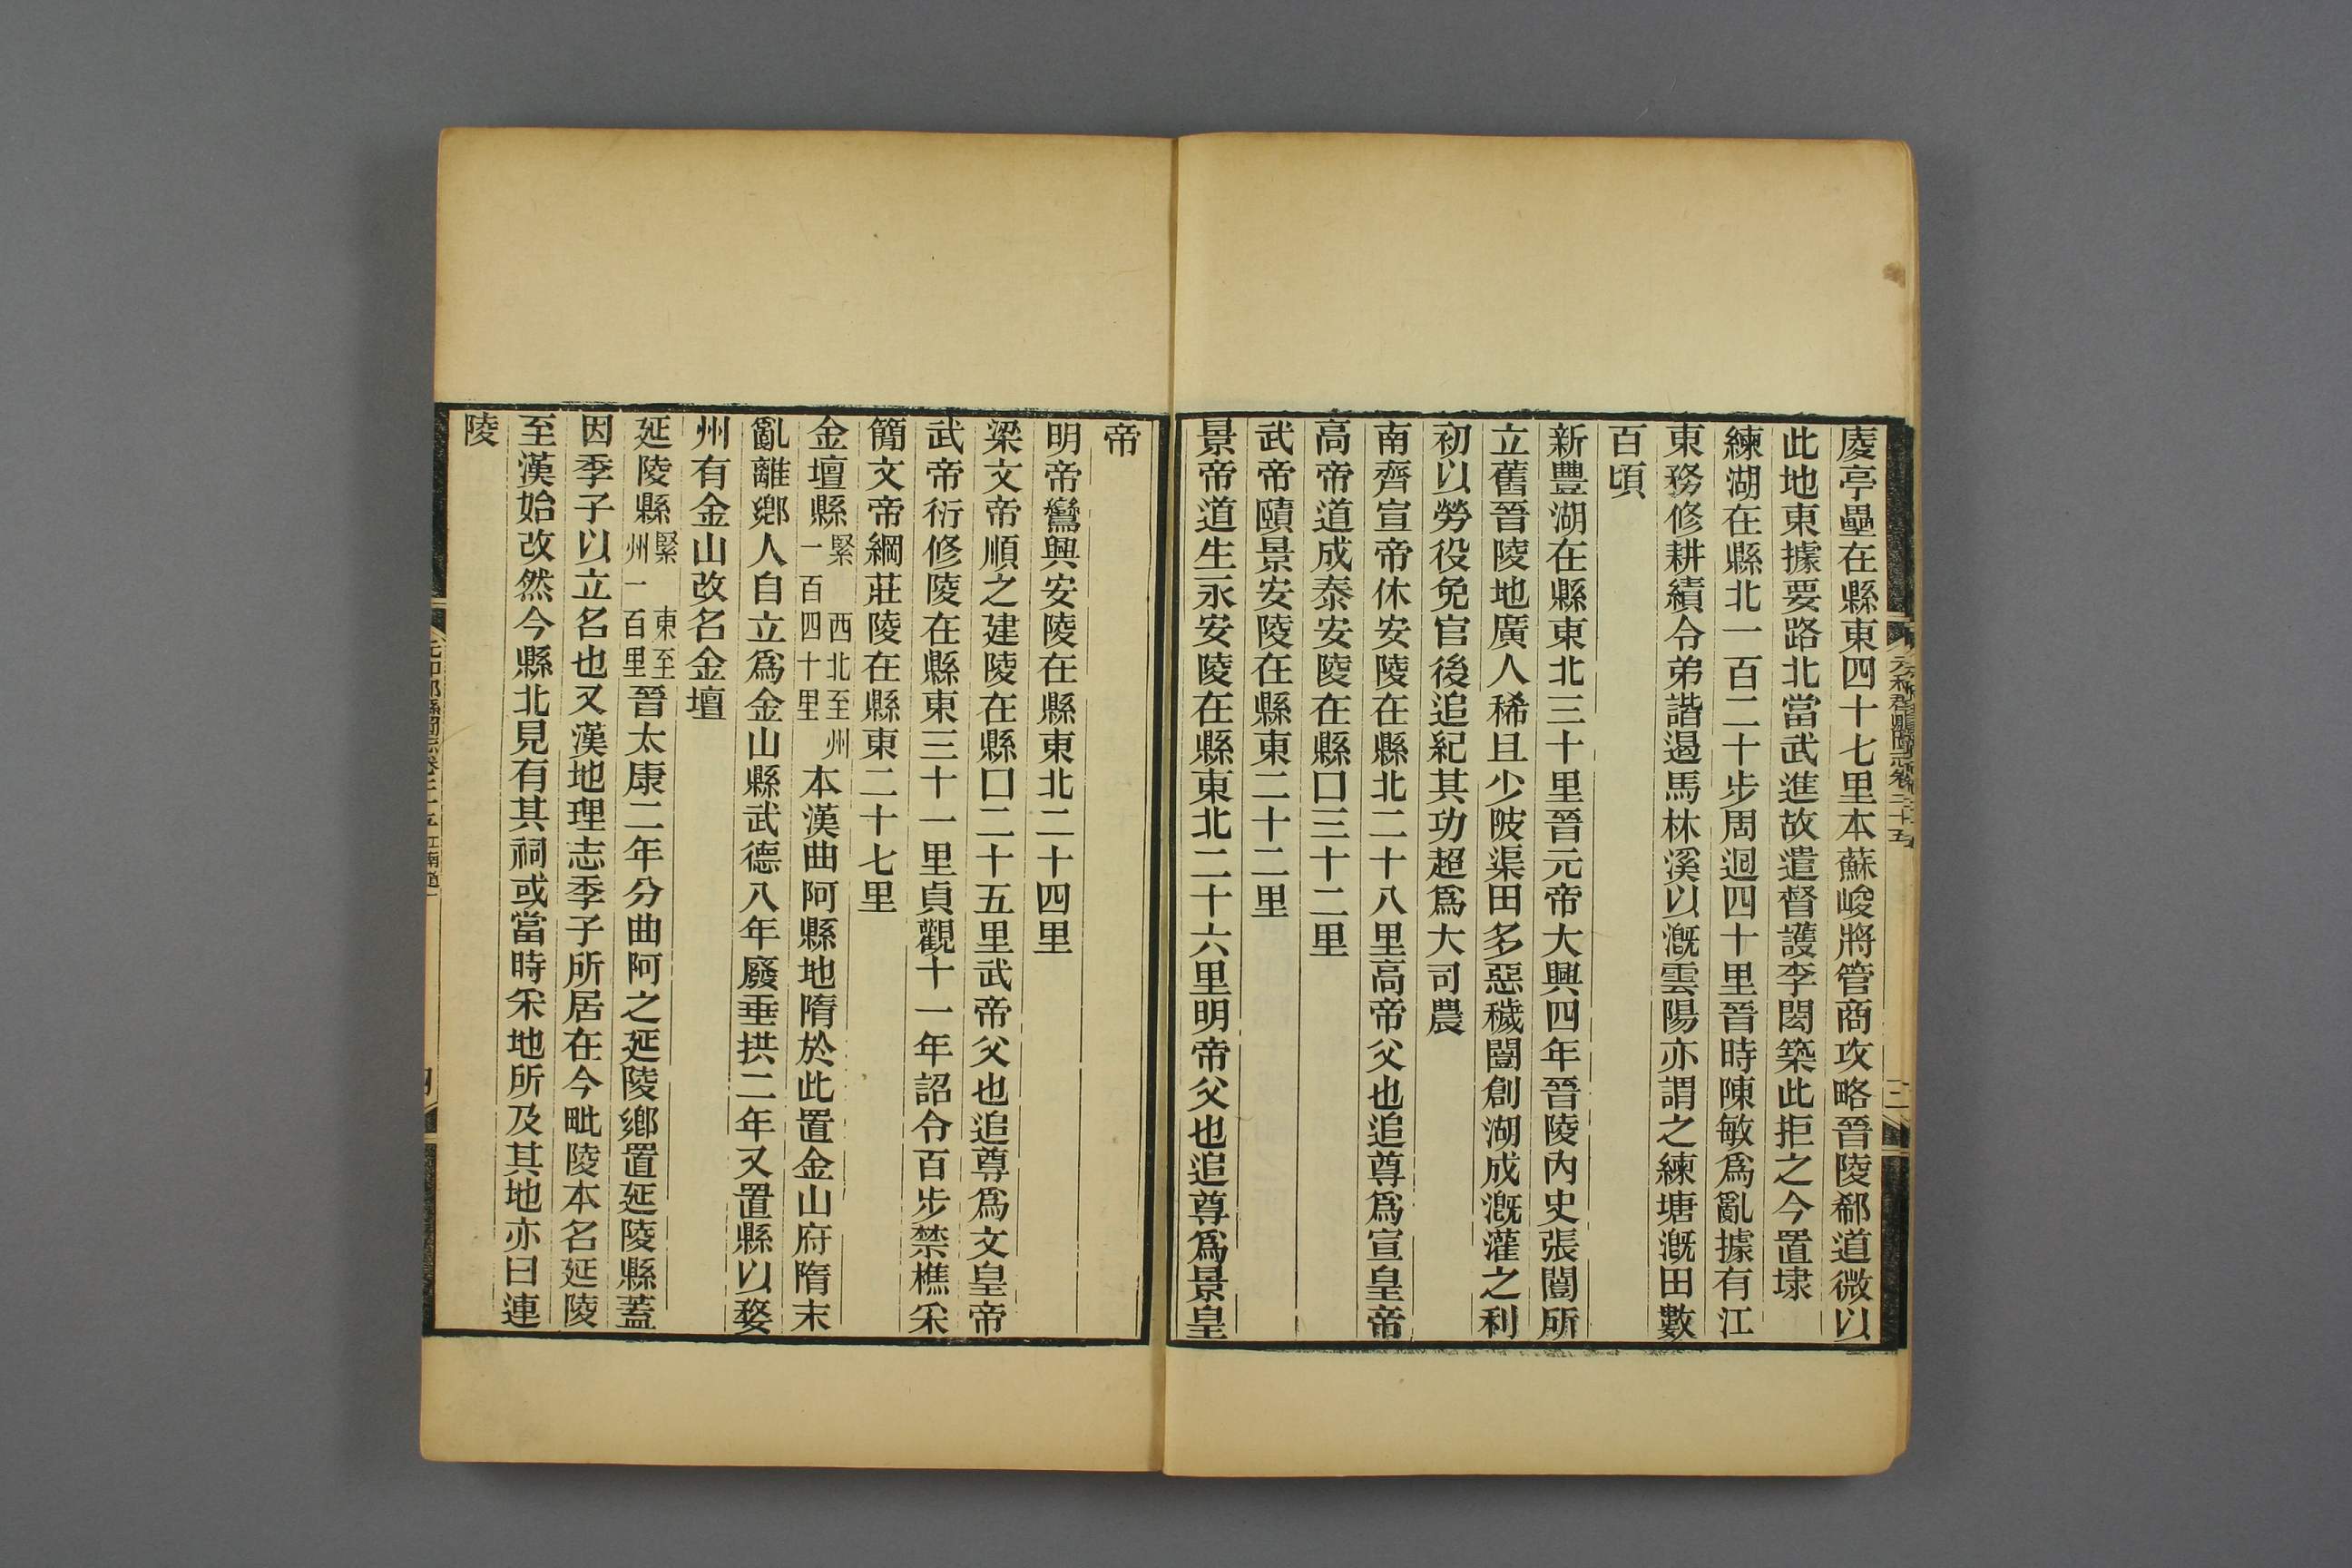 慶亭壘在縣東四十七里本蘇峻將管商攻略晉陵郗道微以
此地東據要路北當武進故遣督護李閎築此拒之今置埭
練湖在縣北一百二十步周迴四十里晉時陳敏爲亂據有江
東務修耕績令弟諧遏馬林溪以溉雲陽亦謂之練塘溉田數
百頃
新豐湖在縣東北三十里晉元帝大興四年晉陵內史張闓所
立舊晉陵地廣人稀且少陂渠田多惡穢闓創湖成溉灌之利
初以勞役免官後追紀其功超爲大司農
南齊宣帝休安陵在縣北二十八里高帝父也追尊爲宣皇帝
高帝道成泰安陵在縣囗三十二里
武帝賾景安陵在縣東二十二里
景帝道生永安陵在縣東北二十六里明帝父也追尊爲景皇
帝
明帝鸞興安陵在縣東北二十四里
梁文帝順之建陵在縣囗二十五里武帝父也追尊爲文皇帝
武帝衍修陵在縣東三十一里貞觀十一年詔令百步禁樵采
簡文帝綱莊陵在縣東二十七里
金壇縣緊 西北至州一百四十里本漢曲阿縣地隋於此置金山府隋末
亂離鄉人自立爲金山縣武德八年廢垂拱二年又置縣以婺
州有金山改名金壇
延陵縣緊 東至州一百里晉太康二年分曲阿之延陵鄉置延陵縣蓋
因季子以立名也又漢地理志季子所居在今毗陵本名延陵
至漢始改然今縣北見有其祠或當時采地所及其地亦曰連
陵
元和郡縣圖志卷二十五
三